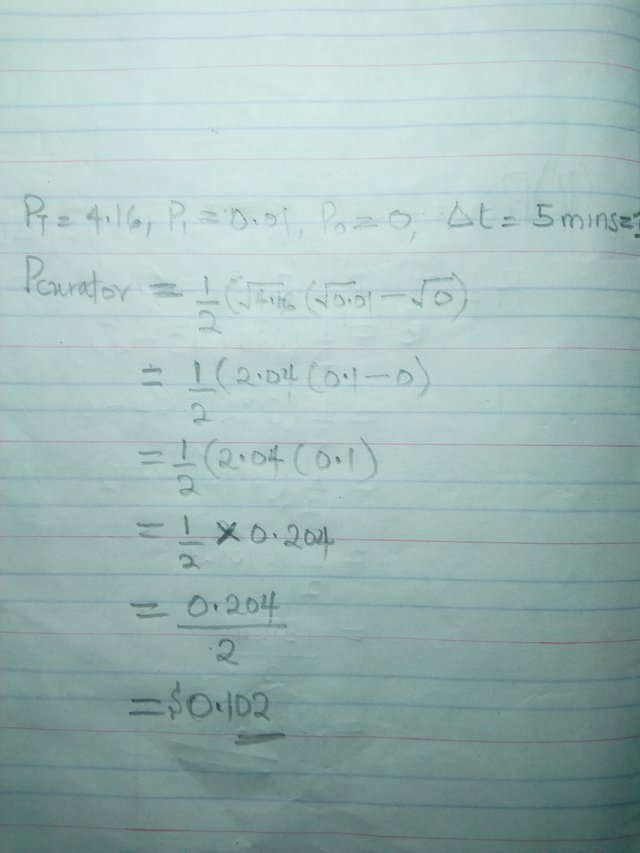 P_T = 4.16, P_1 = 0.01, P_0 = 0, Δt = 5 mins =
P_curator = 1/2 (√4.16 (√0.01 − √0)
= 1/2 (2.04 (0.1 − 0)
= 1/2 (2.04 (0.1)
= 1/2 × 0.204
= 0.204/2
= $0.102